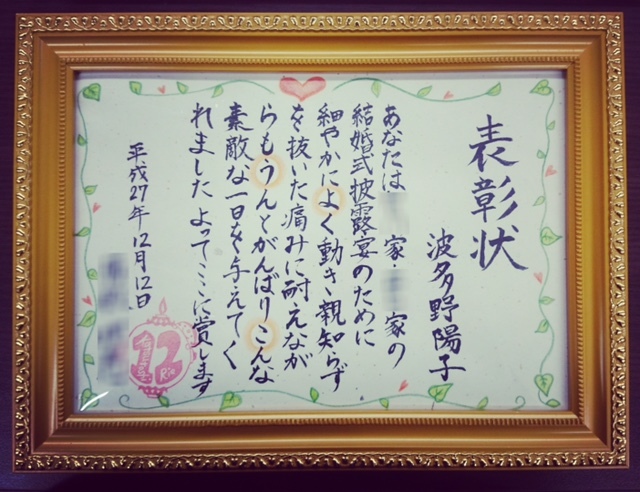 表彰状
波多野陽子
あなたは 家・ 家の
結婚式披露宴のために
細やかによく動き親知らず
を抜いた痛みに耐えなが
らもうんとがんばりこんな
素敵な一日を与えてく
れました よってここに賞します
平成27年12月12日
12
Rie